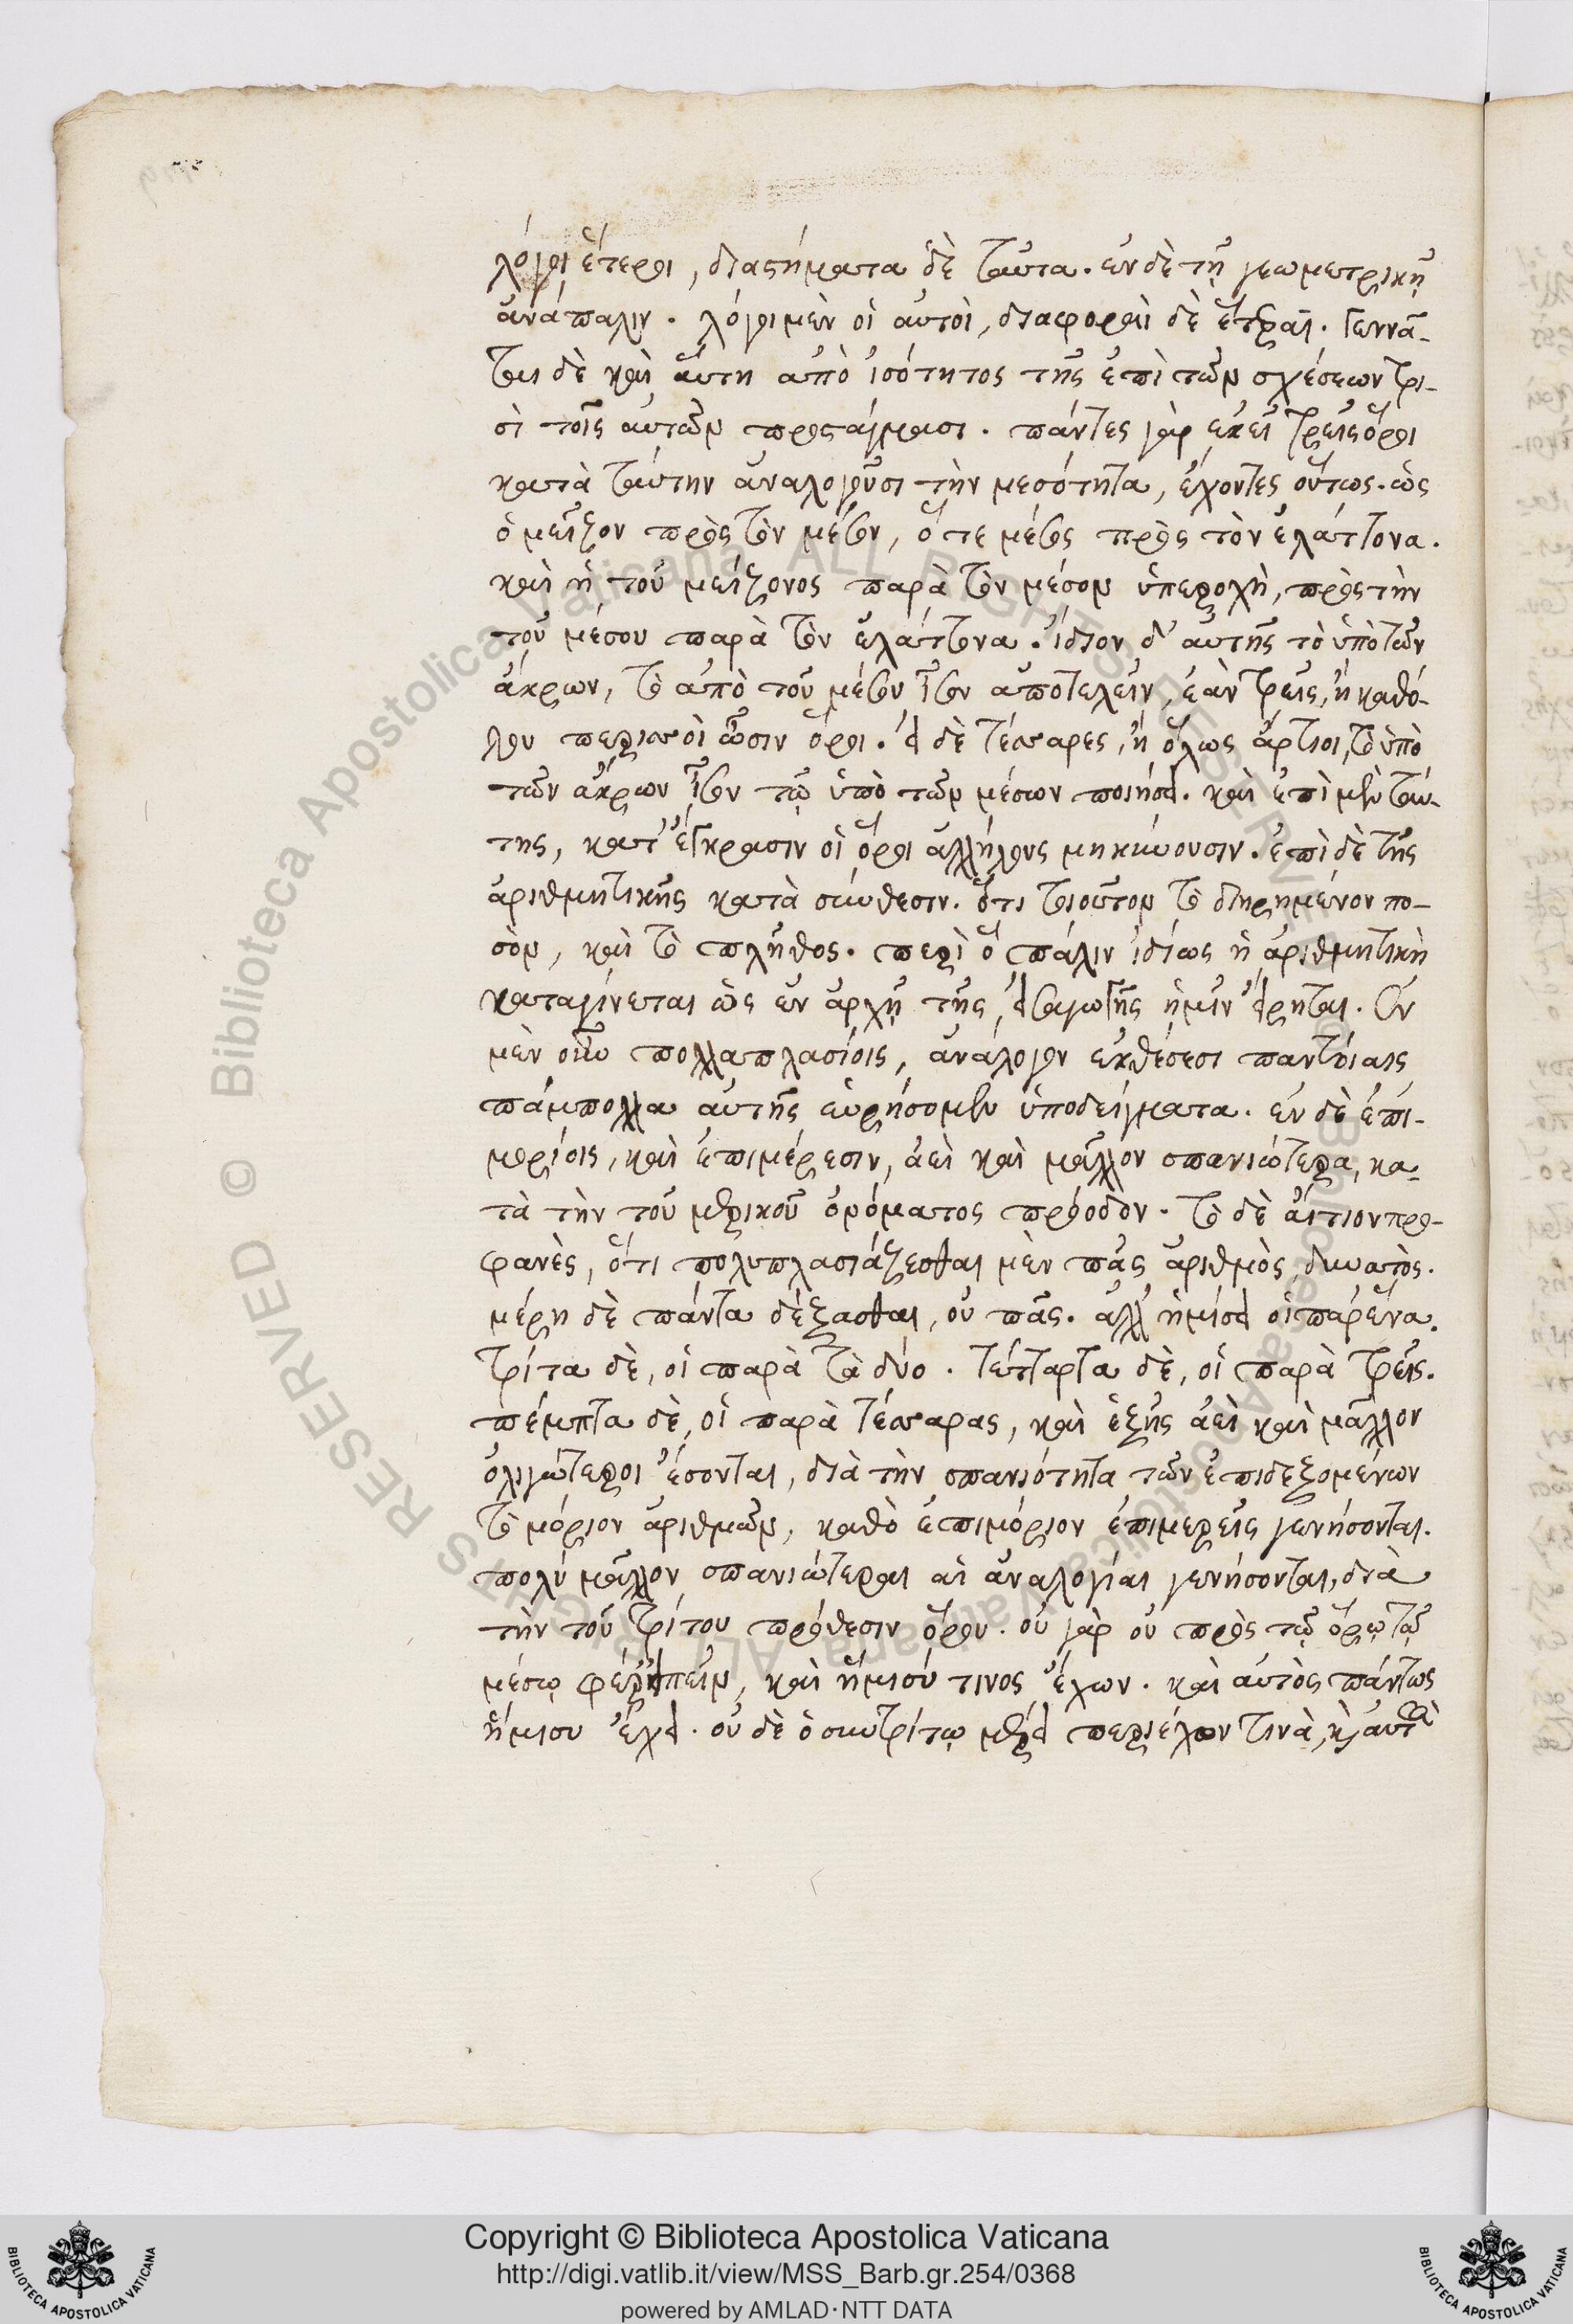 λόγοι ἕτεροι, διαστήματα δὲ ταῦτα. ἐν δὲ τῇ γεωμετρικῇ
ἀνάπαλιν. λόγοι μὲν οἱ αὐτοὶ, διαφοραὶ δὲ ἕτεραι. Γεννᾶ-
ται δὲ καὶ αὕτη ἀπὸ ἰσότητος τῆς ἐπὶ τῶν σχέσεων τρι-
σὶ τοῖς αὐτῶν προστάγμασι. πάντες γὰρ ἐκεῖ τρεῖς ὅροι
κατὰ ταύτην ἀναλογοῦσι τὴν μεσότητα, ἔχοντες οὕτως. ὡς
ὁ μεῖζον πρὸς τὸν μέσον, ὅ τε μέσος πρὸς τὸν ἐλάττονα.
καὶ ἡ τοῦ μείζονος παρὰ τὸν μέσον ὑπεροχὴ, πρὸς τὴν
τοῦ μέσου παρὰ τὸν ἐλάττονα. ἴδιον δ' αὐτῆς τὸ ὑπὸ τῶν
ἄκρων, τὸ ἀπὸ τοῦ μέσου ἴσον ἀποτελεῖν, ἐὰν τρεῖς, ἢ καθό-
λου περισσοὶ ὦσιν ὅροι. εἰ δὲ τέσσαρες, ἢ ὅλως ἄρτιοι, τὸ ὑπὸ
τῶν ἄκρων ἴσον τῷ ὑπὸ τῶν μέσων ποιήσει. καὶ ἐπὶ μὲν ταύ-
της, κατ' ἔγκρασιν οἱ ὅροι ἀλλήλους μηκύνουσιν. ἐπὶ δὲ τῆς
ἀριθμητικῆς κατὰ σύνθεσιν. ὅτι τοιοῦτον τὸ διῃρημένον πο-
σὸν, καὶ τὸ πλῆθος. περὶ ὃ πάλιν ἰδίως ἡ ἀριθμητικὴ
καταγίνεται ὡς ἐν ἀρχῇ τῆς εἰσαγωγῆς ἡμῖν εἴρηται. Ἐν
μὲν οὖν πολλαπλασίοις, ἀνάλογον ἐκθέσεσι παντοίαις
πάμπολλα αὐτῆς εὑρήσομεν ὑποδείγματα. ἐν δὲ ἐπι-
μορίοις, καὶ ἐπιμέρεσιν, ἀεὶ καὶ μᾶλλον σπανιώτερα, κα-
τὰ τὴν τοῦ μερικοῦ ὀνόματος πρόοδον. τὸ δὲ αἴτιον προ-
φανὲς, ὅτι πολυπλασιάζεσθαι μὲν πᾶς ἀριθμὸς δυνατὸς.
μέρη δὲ πάντα δέξασθαι, οὐ πᾶς. ἀλλ' ἡμίσει οἱ παρ' ἕνα.
τρίτα δὲ, οἱ παρὰ τὰ δύο. τέταρτα δὲ, οἱ παρὰ τρεῖς.
πέμπτα δὲ, οἱ παρὰ τέσσαρας, καὶ ἑξῆς ἀεὶ καὶ μᾶλλον
ὀλιγώτεροι ἔσονται, διὰ τὴν σπανιότητα τῶν ἐπιδεξομένων
τὸ μόριον ἀριθμῶν, καθὸ ἐπιμόριον ἐπιμερεῖς γενήσονται.
πολὺ μᾶλλον σπανιώτεραι αἱ ἀναλογίαι γενήσονται, διὰ
τὴν τοῦ τρίτου πρόθεσιν ὅρου. οὐ γὰρ οὐ πρὸς τῷ ὅρῳ τῷ
μέσῳ φέρει εἰπεῖν, καὶ ἥμισύ τινος ἔχων. καὶ αὐτὸς πάντως
ἥμισυ ἔχει. οὐ δὲ ὁ σὺν τρίτῳ μέρει περιέχων τινὰ, καὶ αὐτὰ
Copyright © Biblioteca Apostolica Vaticana
http://digi.vatlib.it/view/MSS_Barb.gr.254/0368
powered by AMLAD·NTT DATA